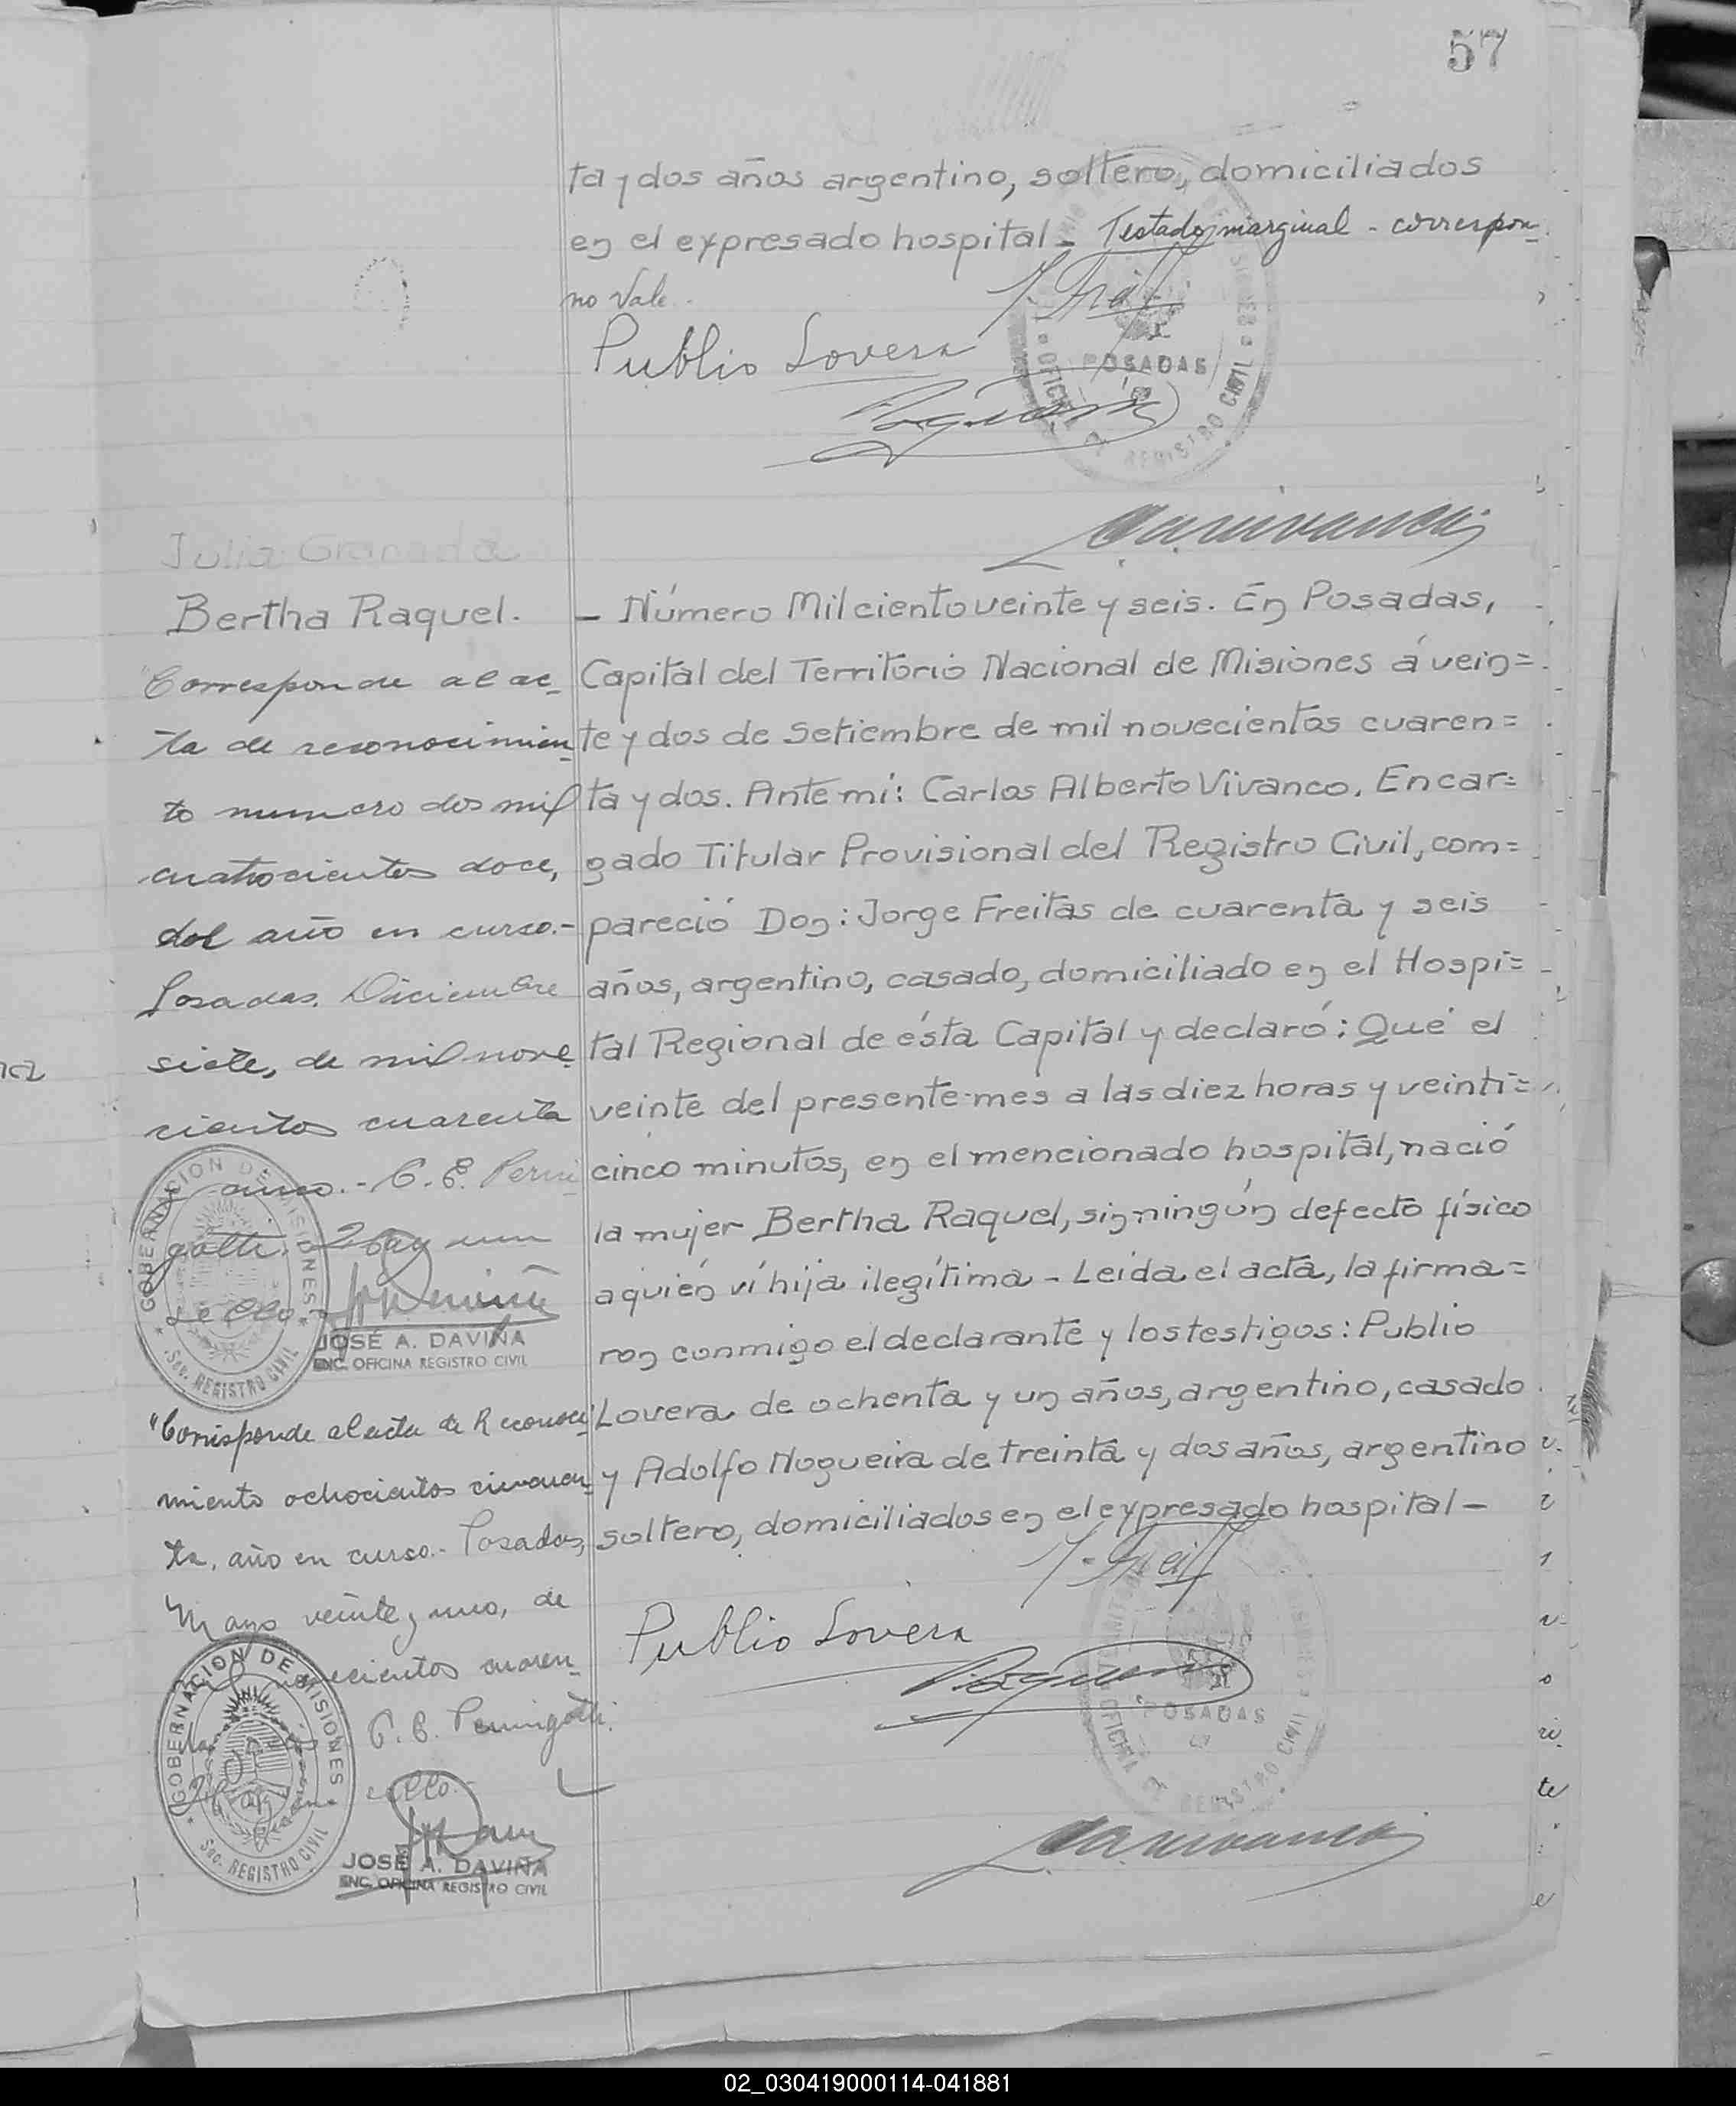 57
ta y dos años argentino, soltero, domiciliados
en el expresado hospital - Testado, marginal - correspon-
no vale.
Publio Lovera
POSADAS
OFICINA REGISTRO CIVIL
Julia Granada
Bertha Raquel.
"Corresponde al ac-
ta de reconocimien-
to numero dos mil
cuatrocientos doce,
del año en curso.-
Posadas, Diciembre
siete, de mil nove-
cientos cuarenta
C. E. Perni-
gotti. Hay un
sello
GOBERNACION DE MISIONES
Sec. REGISTRO CIVIL
JOSÉ A. DAVIÑA
ENC. OFICINA REGISTRO CIVIL
"Corresponde al acta de Reconoci-
miento ochocientos cincuen-
ta, año en curso.- Posadas,
Mayo veinte y uno, de
mil novecientos cuaren-
ta C. E. Pernigotti.
sello.-
GOBERNACION DE MISIONES
Sec. REGISTRO CIVIL
JOSÉ A. DAVIÑA
ENC. OFICINA REGISTRO CIVIL
- Número Mil ciento veinte y seis. En Posadas,
Capital del Territorio Nacional de Misiones á vein=
te y dos de Setiembre de mil novecientos cuaren=
ta y dos. Ante mi: Carlos Alberto Vivanco, Encar=
gado Titular Provisional del Registro Civil, com=
pareció Don: Jorge Freitas de cuarenta y seis
años, argentino, casado, domiciliado en el Hospi=
tal Regional de ésta Capital y declaró: Que el
veinte del presente mes a las diez horas y veinti=
cinco minutos, en el mencionado hospital, nació
la mujer Bertha Raquel, sin ningún defecto físico
a quién ví hija ilegítima - Leida el acta, la firma=
ron conmigo el declarante y los testigos: Publio
Lovera de ochenta y un años, argentino, casado
y Adolfo Nogueira de treinta y dos años, argentino
soltero, domiciliados en el expresado hospital -
Publio Lovera
POSADAS
OFICINA REGISTRO CIVIL
te
02_030419000114-041881